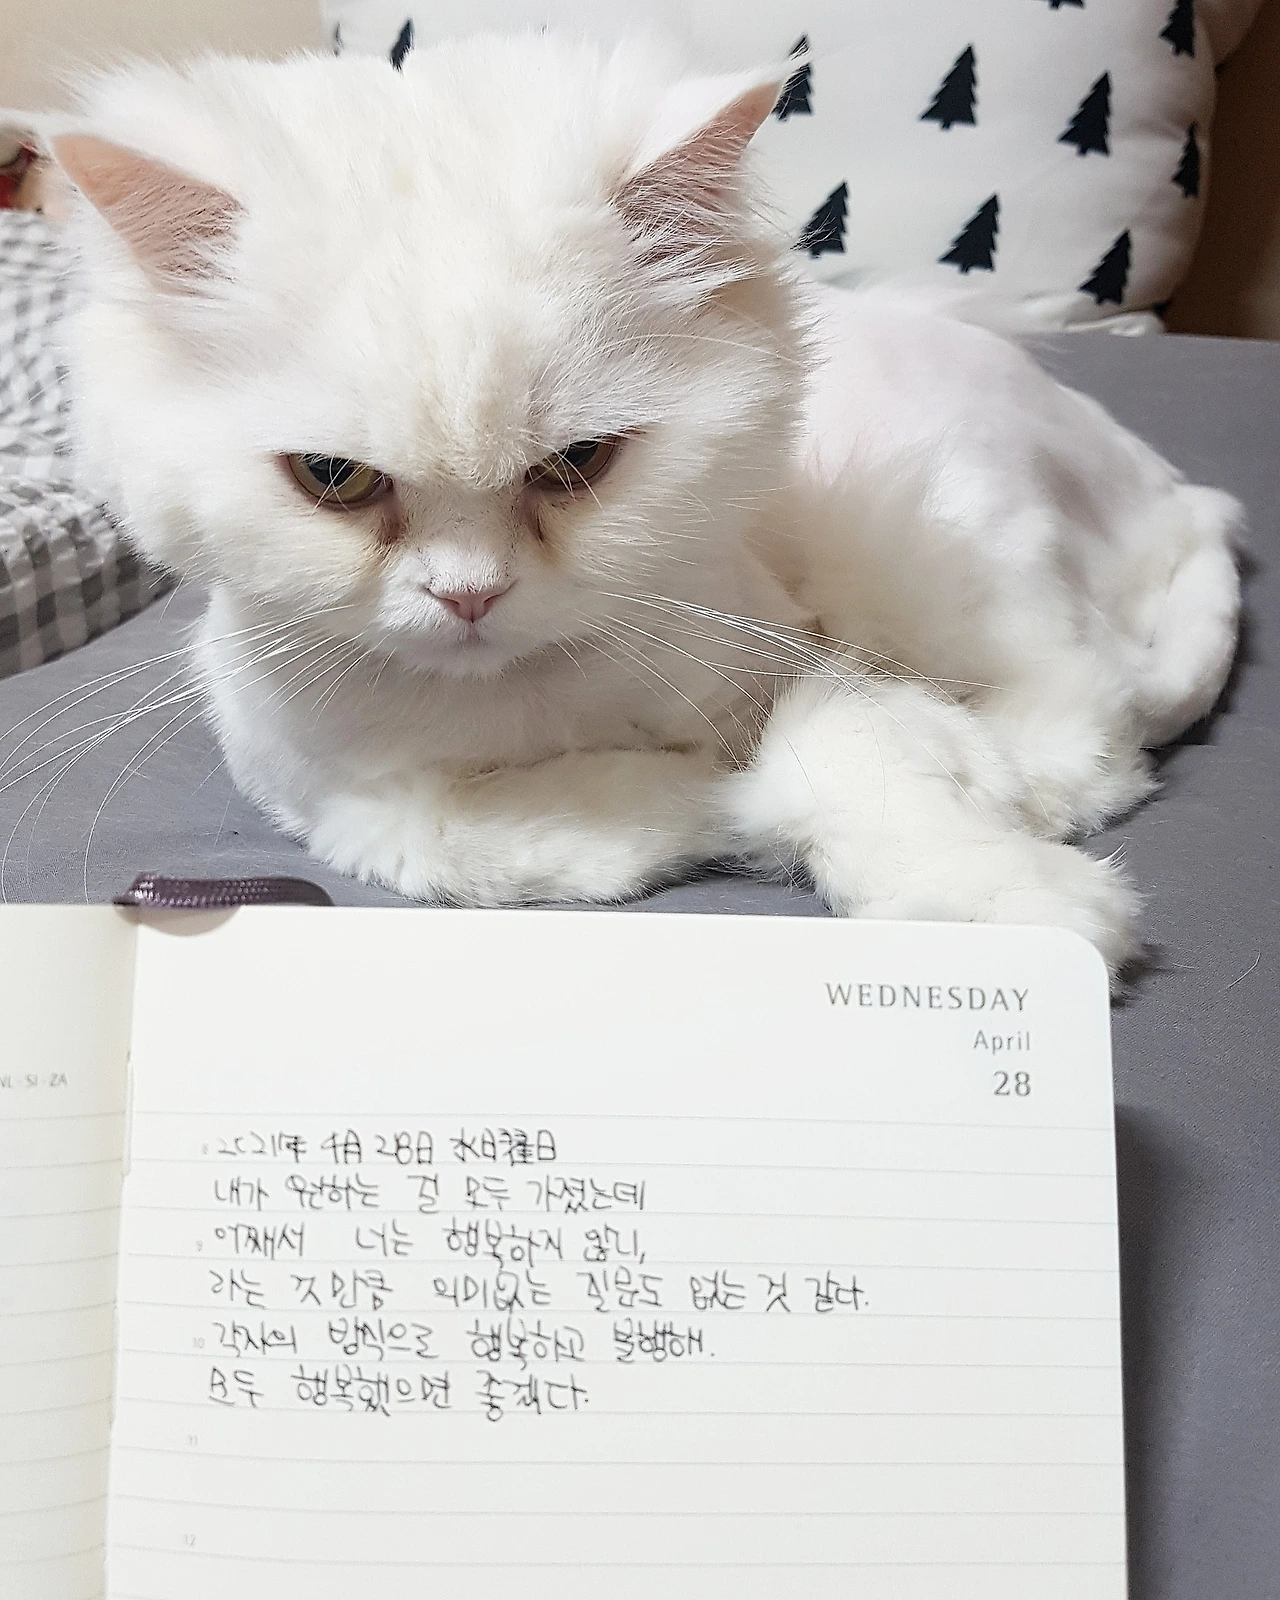 WEDNESDAY
April
28
NL - SI - ZA
8 2021年 4月 28日 水曜日
내가 원하는 걸 모두 가졌는데
9 어째서 너는 행복하지 않니,
라는 것 만큼 의미없는 질문도 없는 것 같다.
10 각자의 방식으로 행복하고 불행해.
모두 행복했으면 좋겠다.
11
12